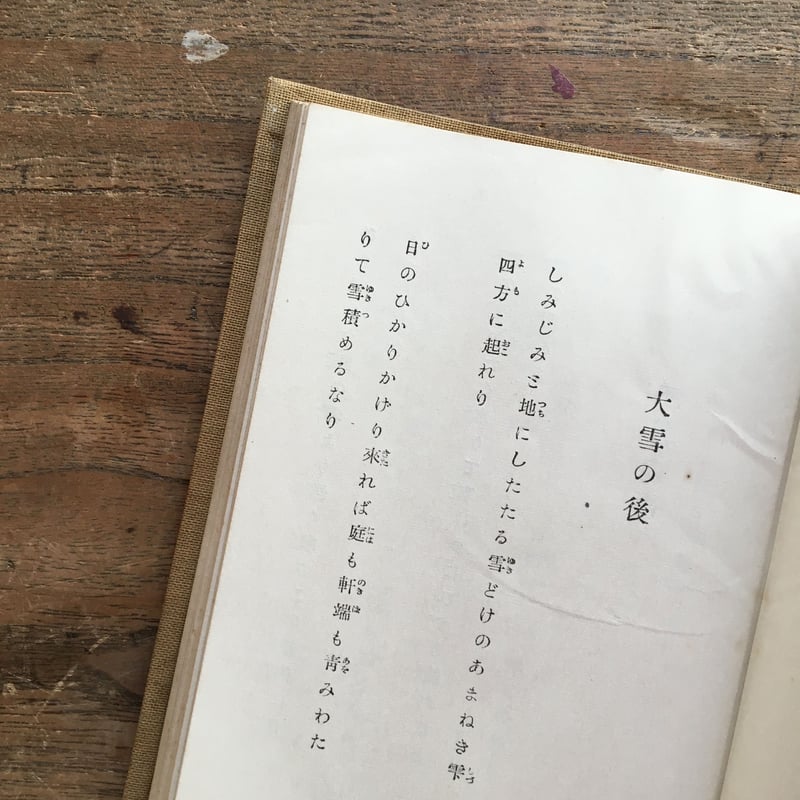 大雪の後
しみじみと地にしたたる雪どけのあまねき雫
四方に起れり
日のひかりかげり來れば庭も軒端も青みわた
りて雪積めるなり